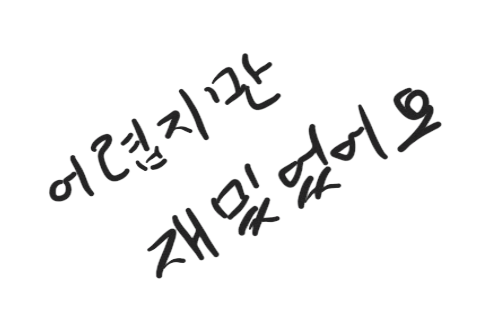 어렵지만
재밌었어요